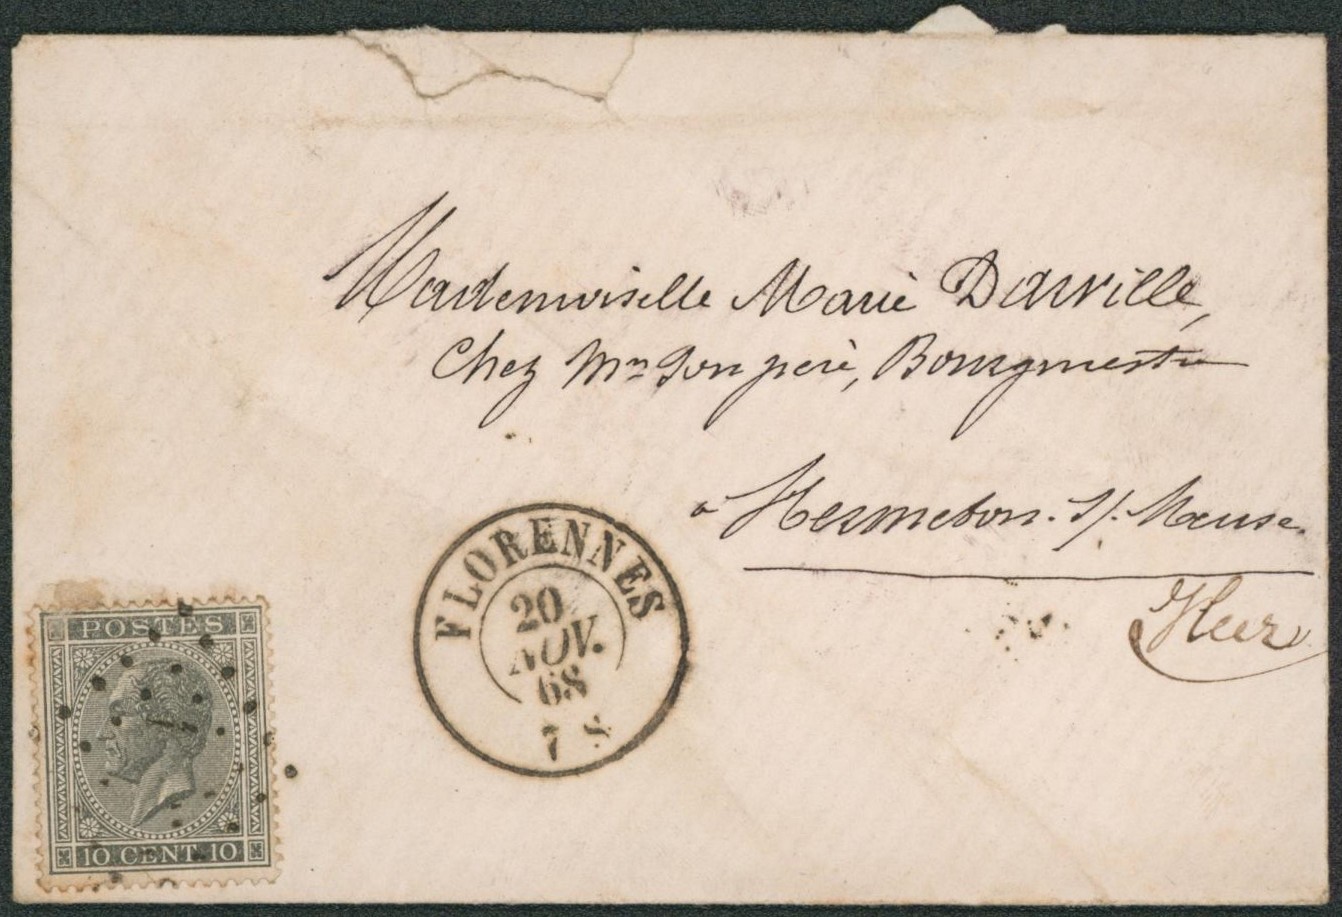 Mademoiselle Marie Darville,
Chez Mr Son père, Bourgmestre
a Hermeton. s/ Meuse
Heer
FLORENNES
20
NOV.
68
7 S
POSTES
10 CENT. 10